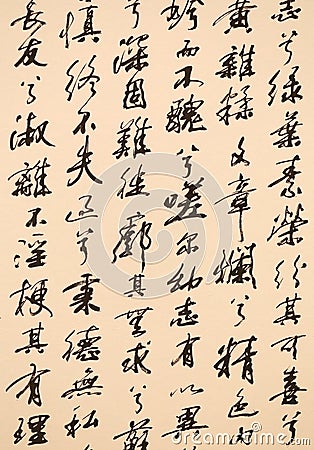 志兮綠葉素榮紛其可喜兮
黃雜糅文章爛兮精色内
姱而不醜兮嗟爾幼志有以異
兮深固難徙廓其無求兮蘇
慎終不失過兮秉德無私
長友兮淑離不淫梗其有理